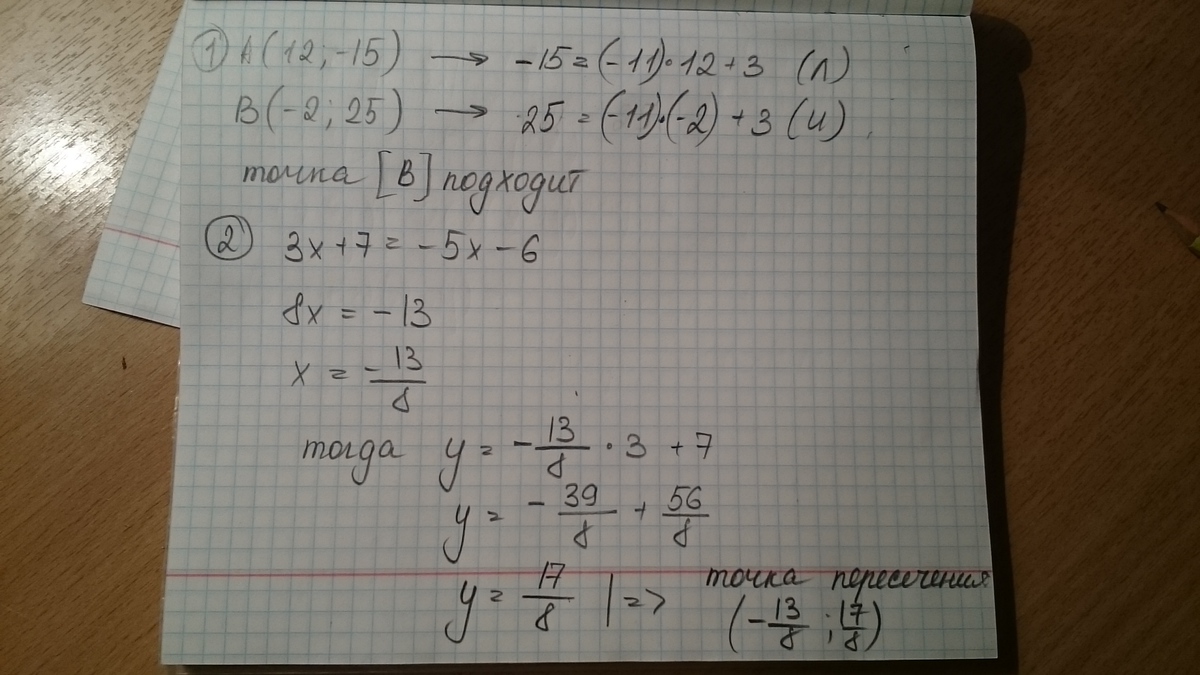 1) A(12; -15) → -15 = (-11)·12 + 3 (Л)
B(-2; 25) → 25 = (-11)·(-2) + 3 (И)
точка [B] подходит
2 3x + 7 = -5x - 6
8x = -13
x = -13/8
тогда y = -13/8 · 3 + 7
y = -39/8 + 56/8
y = 17/8 | => точка пересечения
(-13/8 ; 17/8)